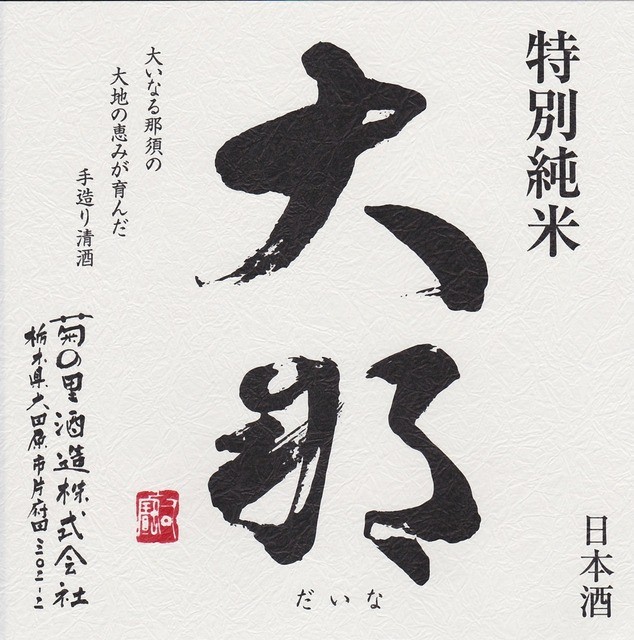 特別純米
日本酒
大那
だいな
大いなる那須の
大地の恵みが育んだ
手造り清酒
菊の里酒造株式会社
栃木県大田原市片府田三〇二-二